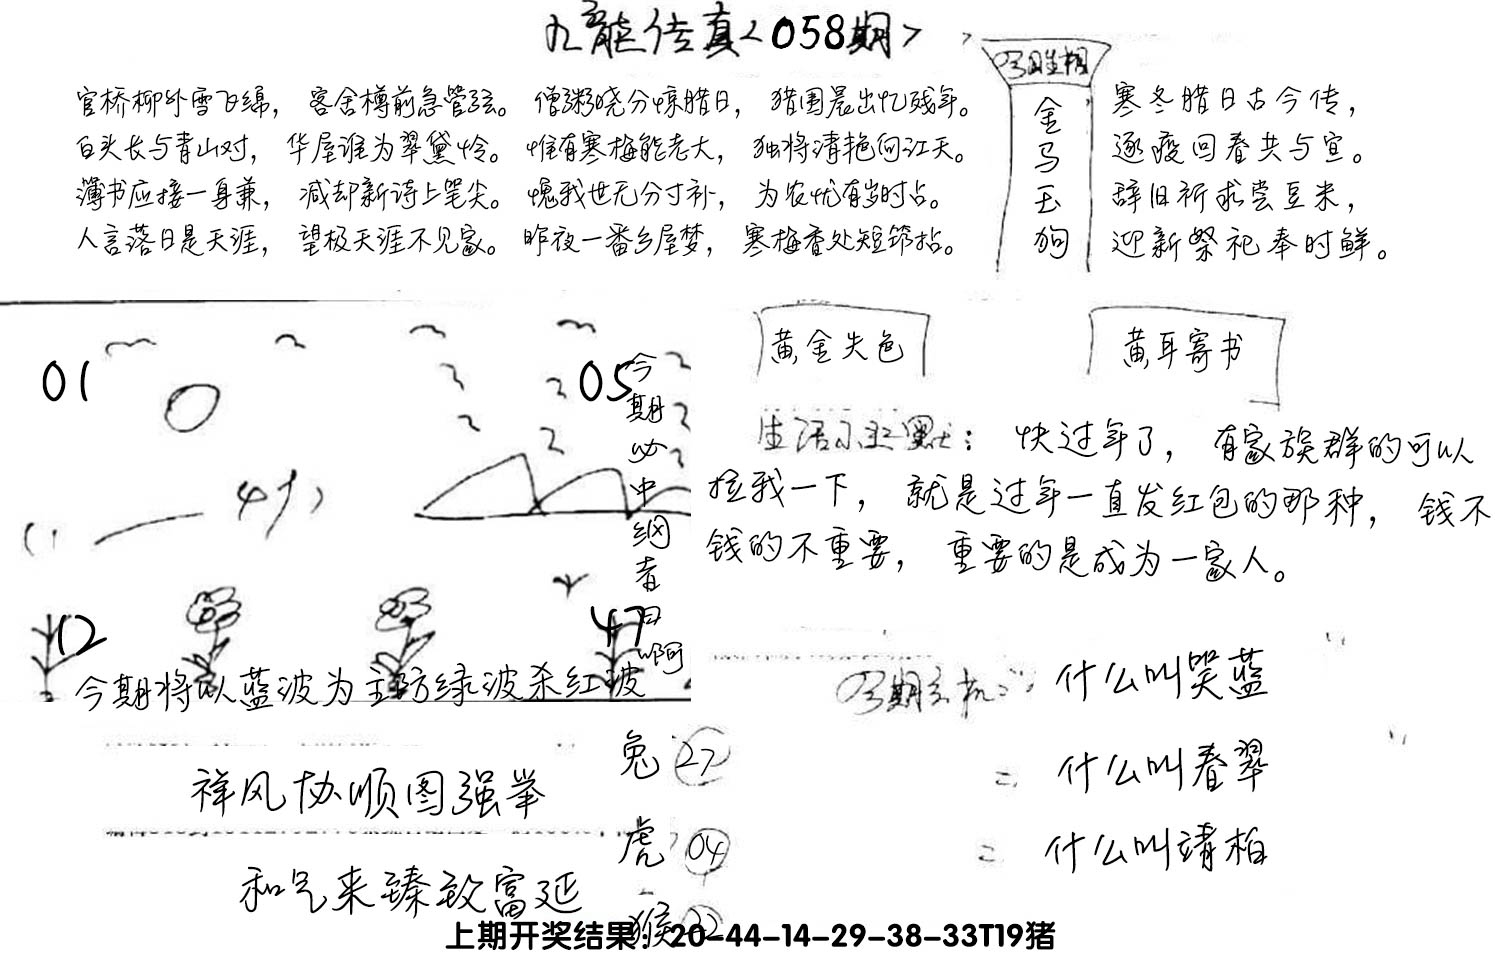 九龙传真<058期>
今日生相
金马玉狗
官桥柳外雪飞绵，客舍樽前急管弦。僧粥晓分惊腊日，猎围晨出忆残年。
白头长与青山对，华屋谁为翠黛怜。惟有寒梅能老大，独将清艳向江天。
薄书应接一身兼，减却新诗上笔尖。愧我世无分寸补，为农忧有岁时占。
人言落日是天涯，望极天涯不见家。昨夜一番乡屋梦，寒梅香处短筇拈。
寒冬腊日古今传，
逐疫回春共与宣。
辞旧祈求尝豆米，
迎新祭祀奉时鲜。
01
05
今期必中纲者日啊
12
47
今期将以蓝波为主防绿波杀红波
黄金失色
黄耳寄书
生活小幽默：快过年了，有家族群的可以
拉我一下，就是过年一直发红包的那种，钱不
钱的不重要，重要的是成为一家人。
什么叫哭蓝
= 什么叫春翠
= 什么叫靖柏
祥风协顺图强举
和气来臻致富延
兔 27
虎 04
猴 22
上期开奖结果：20-44-14-29-38-33T19猪